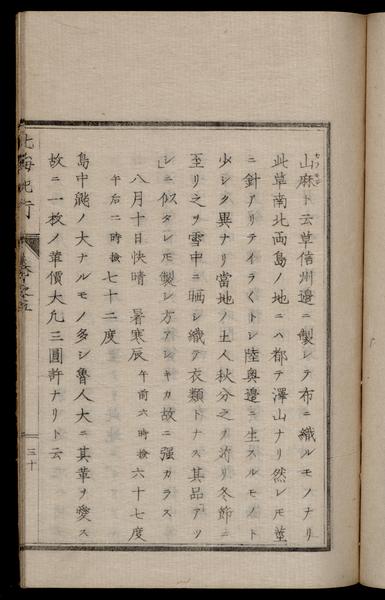 山麻ト云草信州邊ニ製シテ布ニ織ルモノナリ
此草南北両島ノ地ニハ都テ澤山ナリ然レモ莖
ニ針アリテイラくトシ陸奥邊ニ生スルモノト
少シク異ナリ當地ノ土人秋分之ヲ苅リ冬節ニ
至リ之ヲ雪中ニ晒シ織テ衣類トナス其品アツ
シニ似タレモ製シ方アシキカ故ニ强カラス
八月十日快晴 暑寒辰 午前六時掞六十七度
午后二時掞七十二度
島中熊ノ大ナルモノ多シ魯人大ニ其革ヲ愛ス
故ニ一枚ノ革價大凡三圓許ナリト云
北海紀行
巻之五
三十